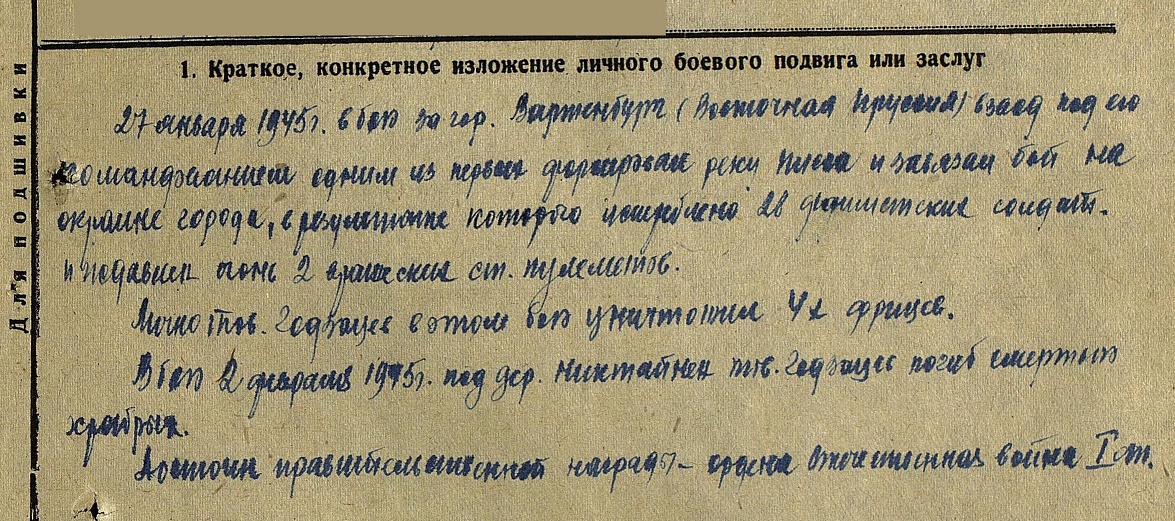 1. Краткое, конкретное изложение личного боевого подвига или заслуг
27 января 1945г. в бою за гор. Вартенбург (Восточная Пруссия) взвод под его
командованием одним из первых форсировал реки Писа и завязал бой на
окраине города, в результате которого истреблено 28 фашистских солдат.
и подавил огонь 2 вражеских ст. пулеметов.
Лично тов. Годзацев в этом бою уничтожил 4х фрицев.
В бою 2 февраля 1945г. под дер. тов. Годзацев погиб смертью
храбрых.
Достоин правительственной награды – ордена Отечественная война I ст.
Для подшивки